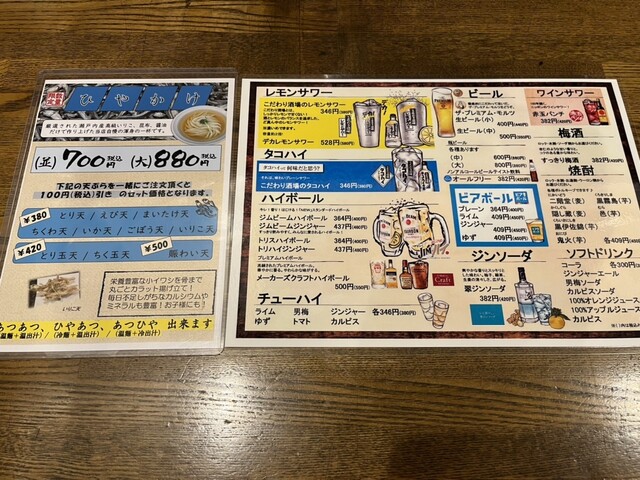 限定
数量
ひやかけ
厳選された瀬戸内産高級いりこ、昆布、醤油
だけで作り上げた当店自慢の渾身の一杯です。
(並)700円 税込 (大)880円 税込
下記の天ぷらを一緒にご注文頂くと
100円(税込)引き のセット価格となります。
¥380 とり天 / えび天 / まいたけ天
ちくわ天 / いか天 / ごぼう天 / いりこ天
¥420 とり玉天 / ちく玉天 ¥500 賑わい天
いりこ天
栄養豊富な小イワシを骨まで
丸ごとカラット揚げ立て!
毎日不足しがちなカルシウムや
ミネラルも豊富!お子様にも!
あつあつ、ひやあつ、あつひや 出来ます
(温麺+温出汁) (冷麺+温出汁) (温麺+冷出汁)
レモンサワー
こだわり酒場のレモンサワー
346円(380円)
デカレモンサワー 528円(580円)
タコハイ
タコハイって何味だと思う?
こだわり酒場のタコハイ 346円(380円)
ハイボール
ジムビームハイボール 364円(400円)
ジムビームジンジャー 437円(480円)
トリスハイボール 364円(400円)
トリハイジンジャー 437円(480円)
プレミアムハイボール
メーカーズクラフトハイボール
500円(550円)
チューハイ
ライム 男梅 ジンジャー 各346円(380円)
ゆず トマト カルピス
ビール
ザ・プレミアム・モルツ
生ビール(小) 400円(440円)
生ビール(中) 500円(550円)
瓶ビール
各種あります
(中) 600円(660円)
(大) 800円(880円)
ノンアルコールビールテイスト飲料
オールフリー 382円(420円)
ビアボール
プレーン 364円(400円)
ライム 409円(450円)
ジンジャー
ゆず 409円(450円)
ジンソーダ
翠ジンソーダ
382円(420円)
ワインサワー
赤玉パンチ
382円(420円)
梅酒
すっきり梅酒 382円(420円)
焼酎
二階堂(麦) 黒霧島(芋)
隠し蔵(麦)
黒伊佐錦(芋)
鬼火(芋) 各409円(450円)
ソフトドリンク
コーラ 各300円(330円)
ジンジャーエール
男梅ソーダ
カルピスソーダ
100%オレンジジュース
100%アップルジュース
カルピス